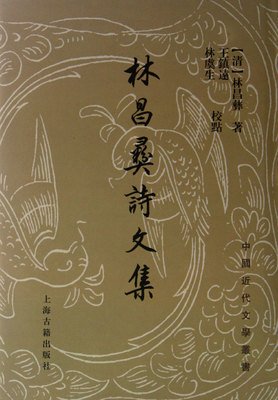 【清】林昌彝 著
王鎮遠
林虞生 校點
林昌彝詩文集
中國近代文學叢書
上海古籍出版社